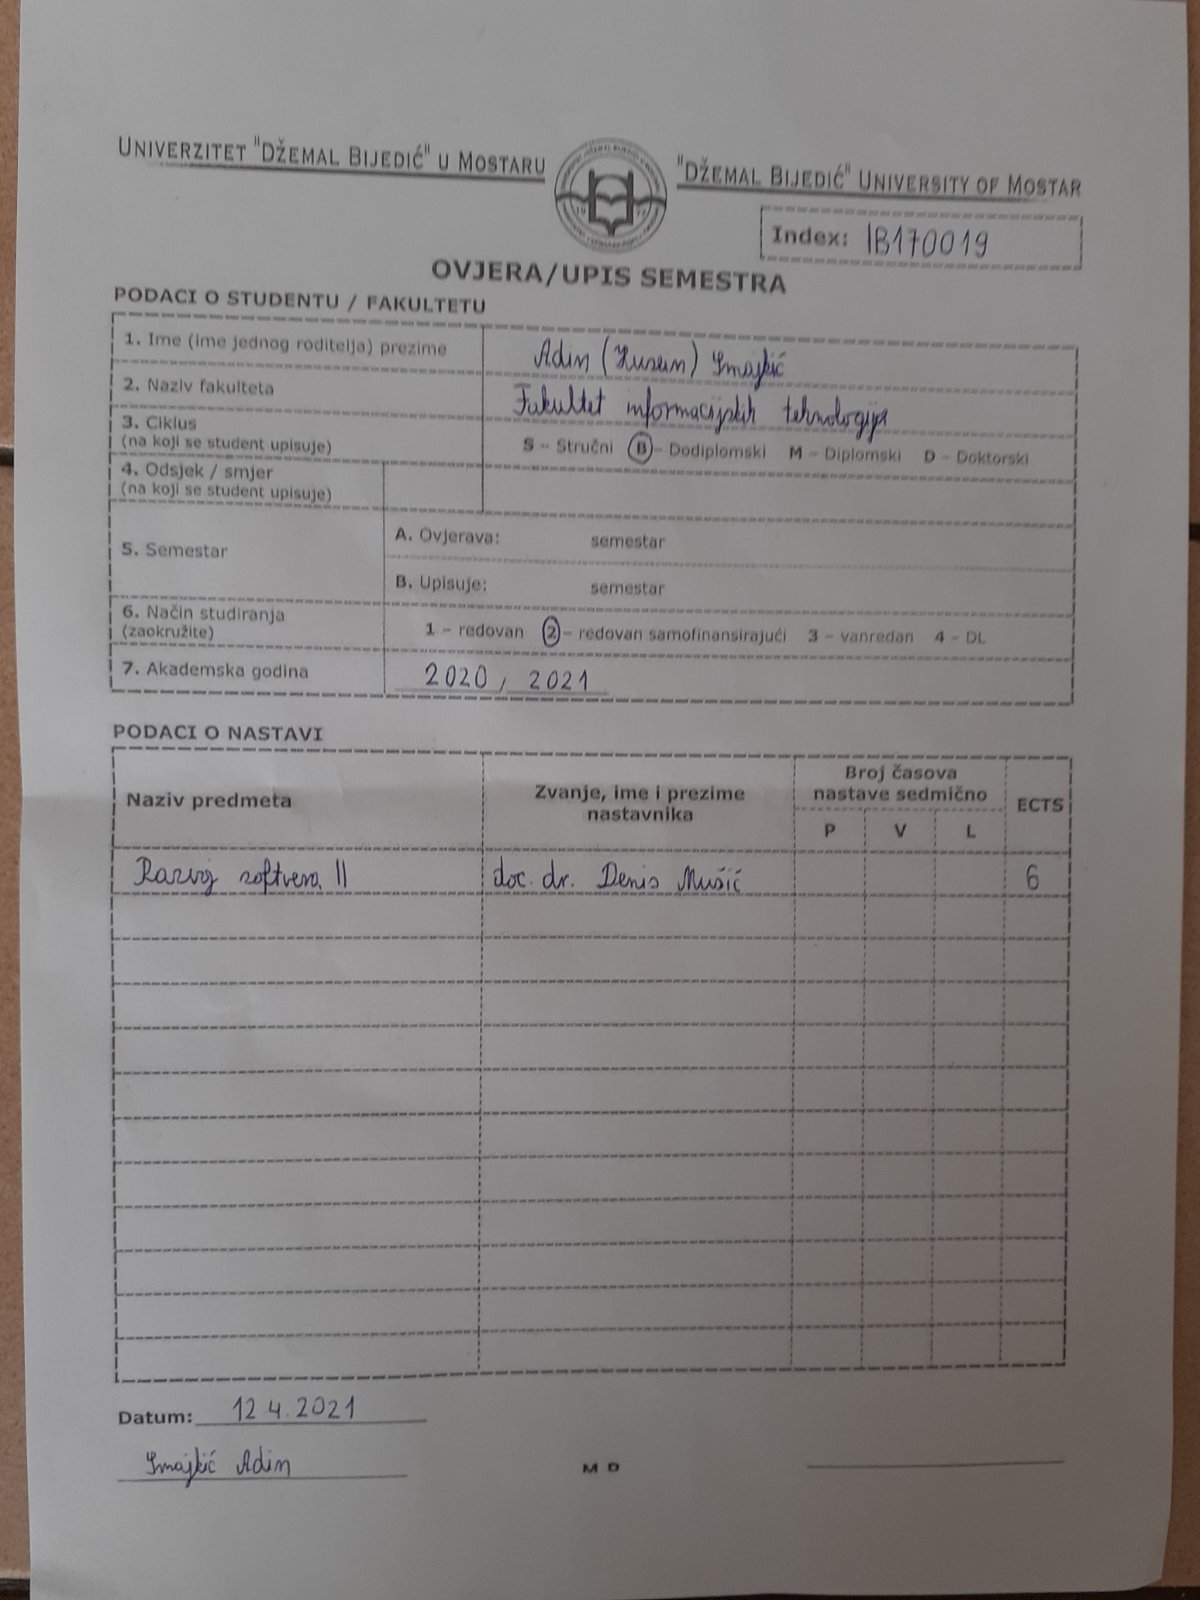 UNIVERZITET "DŽEMAL BIJEDIĆ" U MOSTARU
"DŽEMAL BIJEDIĆ" UNIVERSITY OF MOSTAR
Index: IB170019
OVJERA/UPIS SEMESTRA
PODACI O STUDENTU / FAKULTETU
1. Ime (ime jednog roditelja) prezime Adin (Husein) Smajkić
2. Naziv fakulteta Fakultet informacijskih tehnologija
3. Ciklus
(na koji se student upisuje) S - Stručni B - Dodiplomski M - Diplomski D - Doktorski
4. Odsjek / smjer
(na koji se student upisuje)
5. Semestar
A. Ovjerava: semestar
B. Upisuje: semestar
6. Način studiranja
(zaokružite) 1 - redovan 2 - redovan samofinansirajući 3 - vanredan 4 - DL
7. Akademska godina 2020 / 2021
PODACI O NASTAVI
Naziv predmeta
Zvanje, ime i prezime
nastavnika
Broj časova
nastave sedmično
P V L
ECTS
Razvoj softvera II doc. dr. Denis Mušić 6
Datum: 12.4.2021
Smajkić Adin
M D